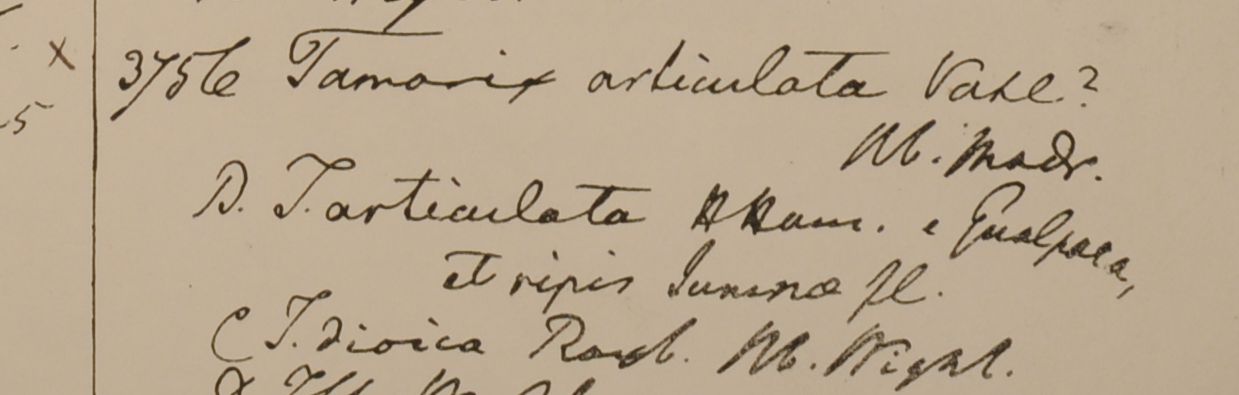 x
3756 Tamarix articulata Vahl?
Hb. Madr.
B. T. articulata HHam. e Gualpara,
et ripis Jumnæ fl.
C T. dioica Roxb. Hb. Wight.